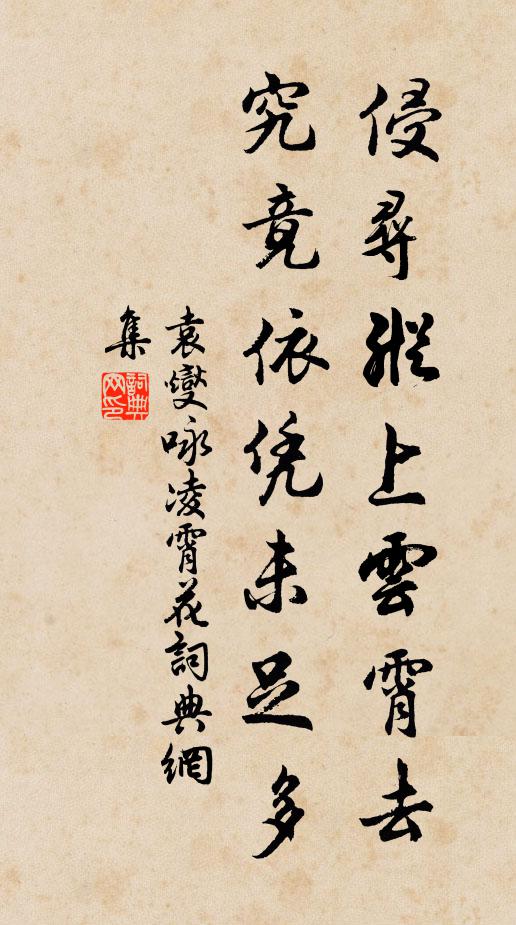 侵尋縱上雲霄去
究竟依凭未足多
袁燮咏凌霄花詞典網
集
詞典网印